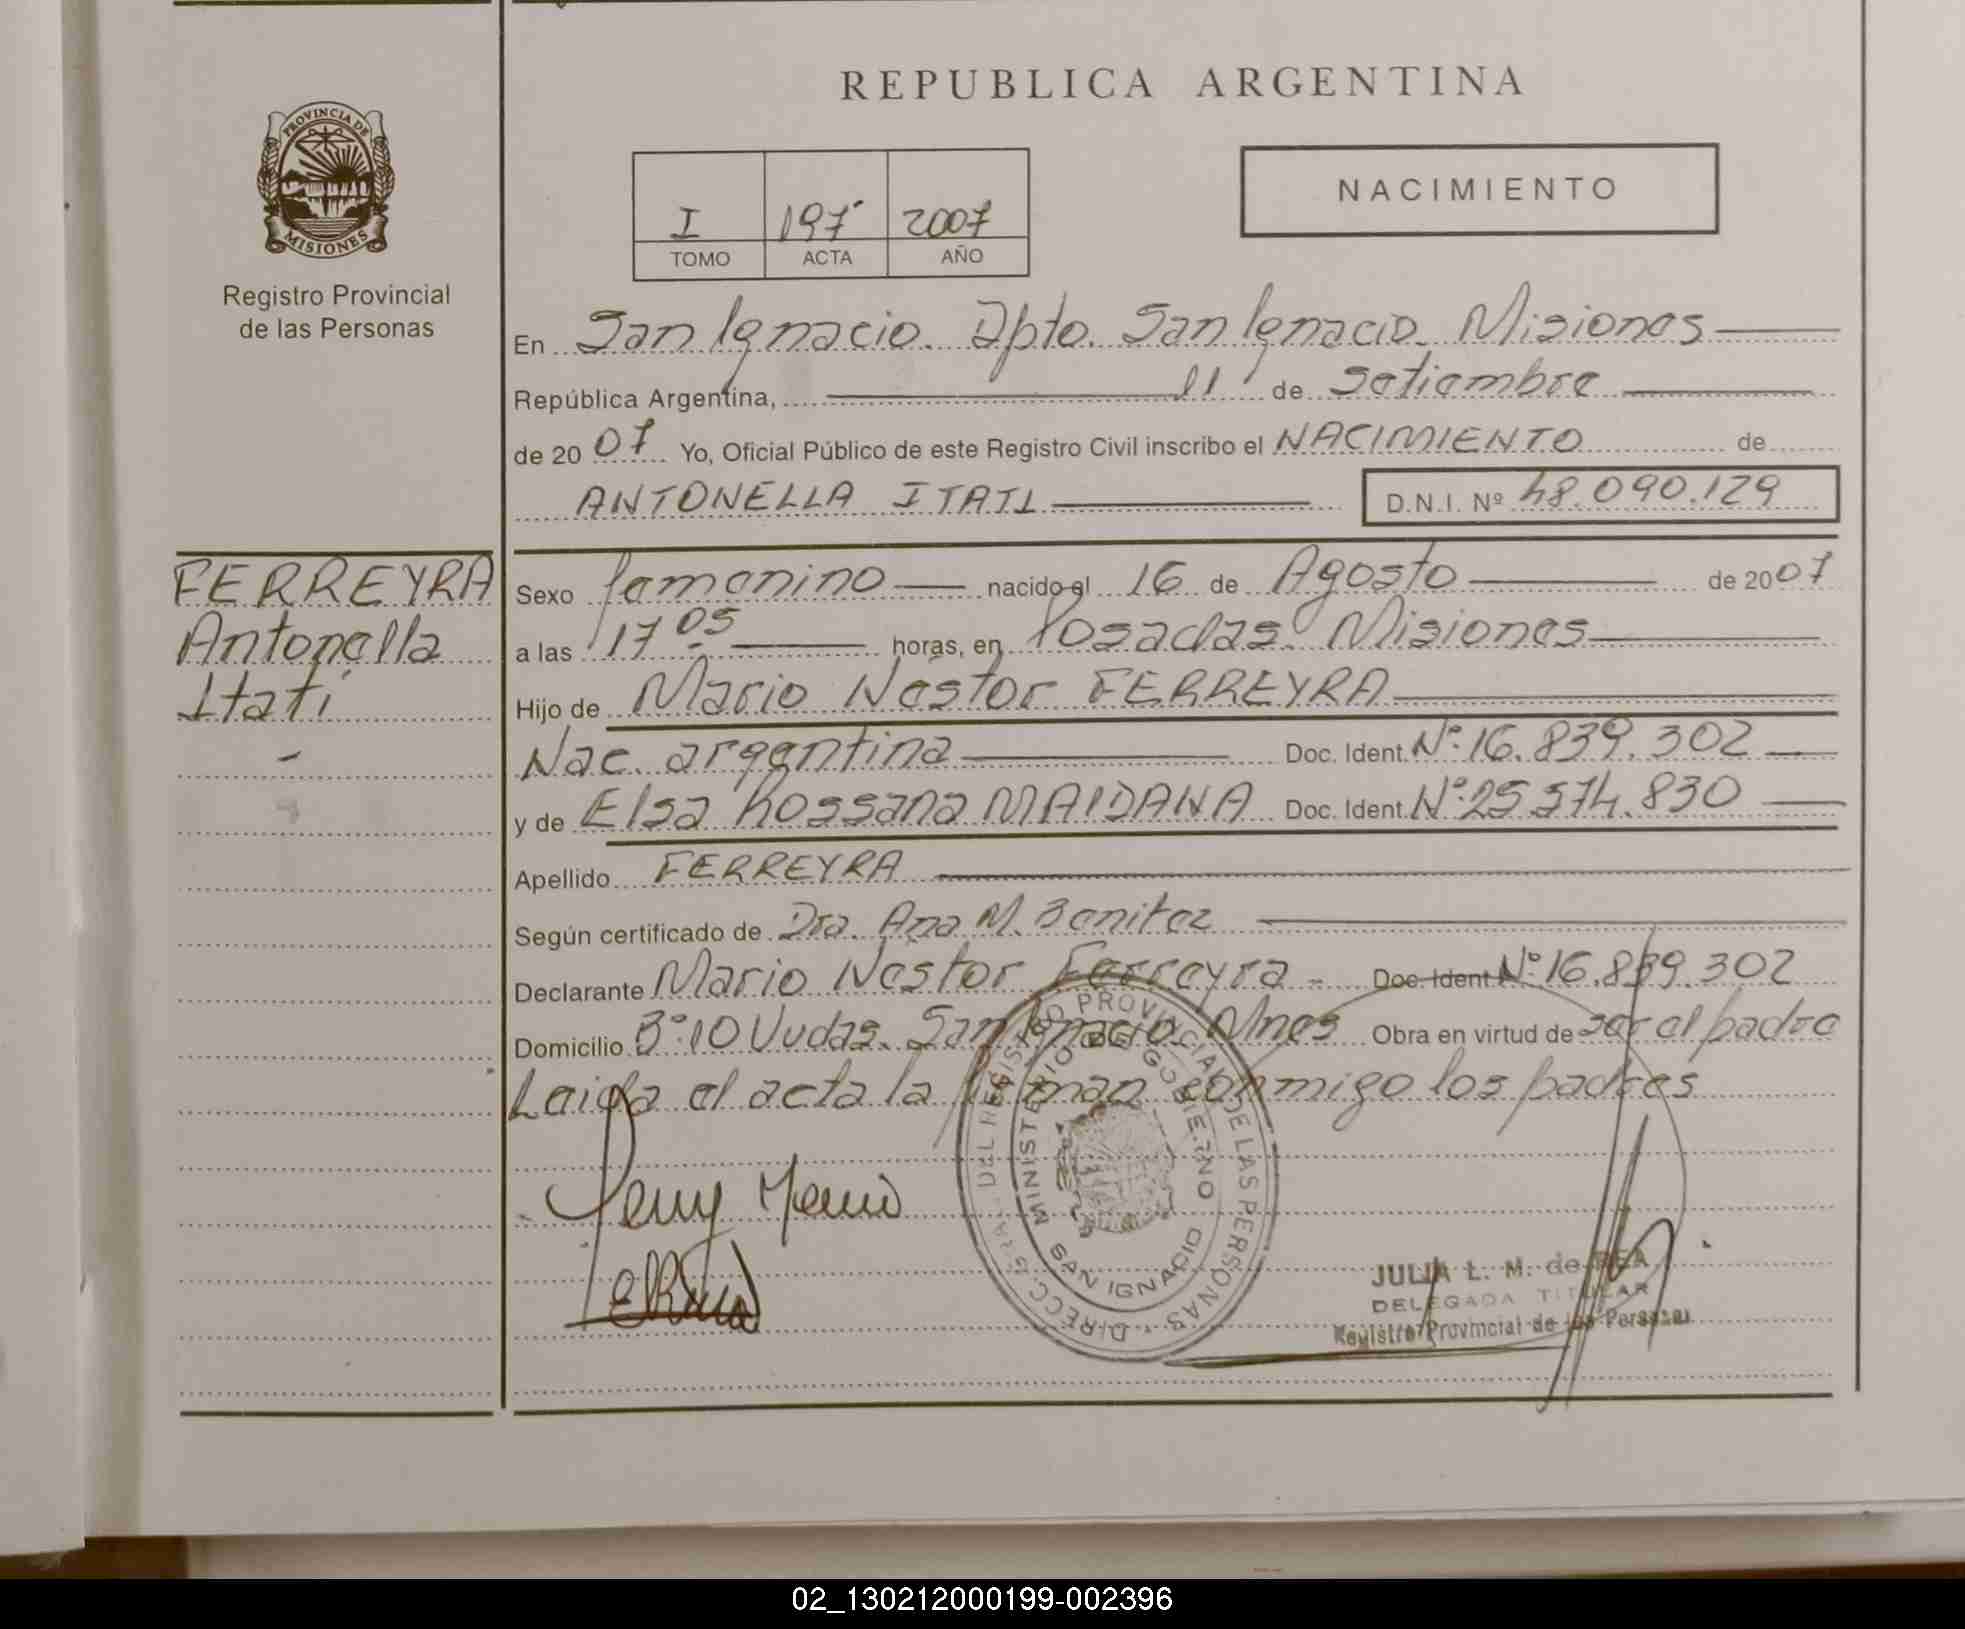 REPUBLICA ARGENTINA
PROVINCIA DE
MISIONES
Registro Provincial
de las Personas
I 197 2007
TOMO ACTA AÑO
NACIMIENTO
En San Ignacio. Dpto. San Ignacio. Misiones
República Argentina, 11 de Setiembre
de 2007 Yo, Oficial Público de este Registro Civil inscribo el NACIMIENTO de
ANTONELLA ITATI D.N.I. Nº 48.090.129
FERREYRA
Antonella
Itatí
-
Sexo femenino nacido el 16 de Agosto de 2007
a las 17 05 horas, en Posadas. Misiones
Hijo de Mario Nestor FERREYRA
Nac. argentina Doc. Ident. Nº 16.839.302
y de Elsa Rossana MAIDANA Doc. Ident. Nº 25.574.830
Apellido FERREYRA
Según certificado de Dra. Ana M. Benitez
Declarante Mario Nestor Ferreyra - Doc. Ident. Nº 16.839.302
Domicilio Bº 10 Vvdas. San Ignacio. Mnes Obra en virtud de ser el padre
Leida el acta la firman conmigo los padres
DIRECC. GRAL. DEL REGISTRO PROVINCIAL DE LAS PERSONAS
MINISTERIO DE GOBIERNO
SAN IGNACIO
JULIA L. M. de REA
DELEGADA TITULAR
Registro Provincial de las Personas
02_130212000199-002396